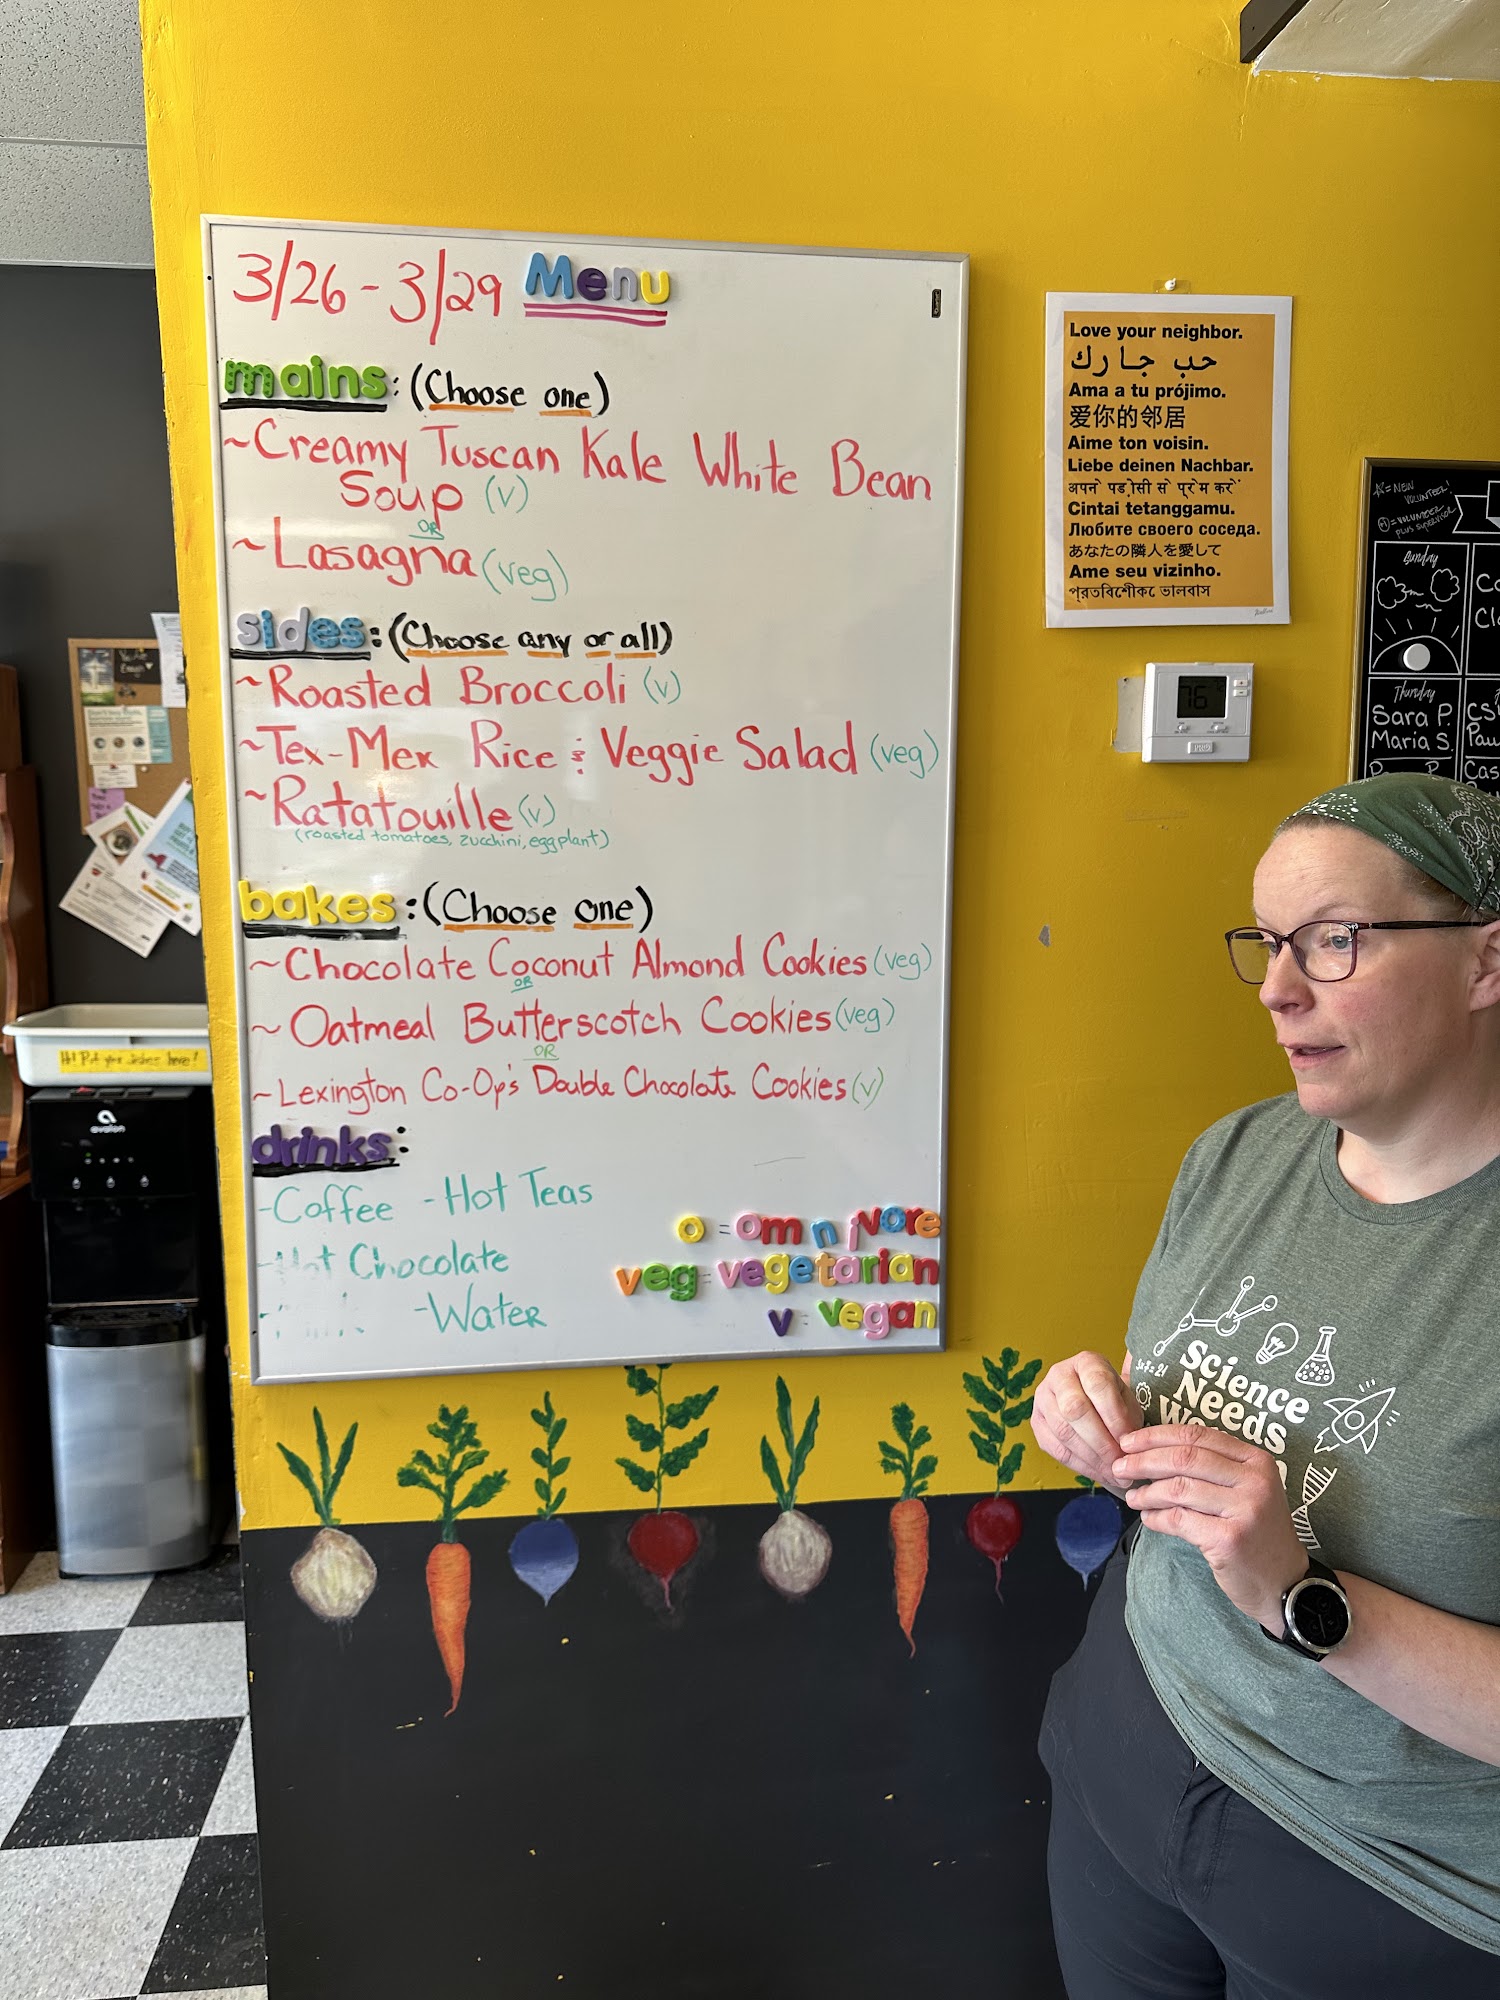 3/26 - 3/29 Menu
mains: (Choose one)
~Creamy Tuscan Kale White Bean
Soup (v)
OR
~Lasagna (veg)
sides: (Choose any or all)
~Roasted Broccoli (v)
~Tex-Mex Rice & Veggie Salad (veg)
~Ratatouille (v)
(roasted tomatoes, zucchini, eggplant)
bakes: (Choose one)
~Chocolate Coconut Almond Cookies (veg)
OR
~Oatmeal Butterscotch Cookies (veg)
OR
~Lexington Co-Op's Double Chocolate Cookies (v)
drinks:
-Coffee -Hot Teas
-Hot Chocolate
-Water
o = omnivore
veg = vegetarian
v = vegan
Love your neighbor.
حب جارك
Ama a tu prójimo.
爱你的邻居
Aime ton voisin.
Liebe deinen Nachbar.
अपने पड़ोसी से प्रेम करें
Cintai tetanggamu.
Любите своего соседа.
あなたの隣人を愛して
Ame seu vizinho.
76
PRO
= NEW
VOLUNTEER!
= VOLUNTEER
PLUS SUPERVISOR
Sunday
Thursday
Sara P.
Maria S.
Cas
Hi! Put your dishes here!
avalon
Science
Needs